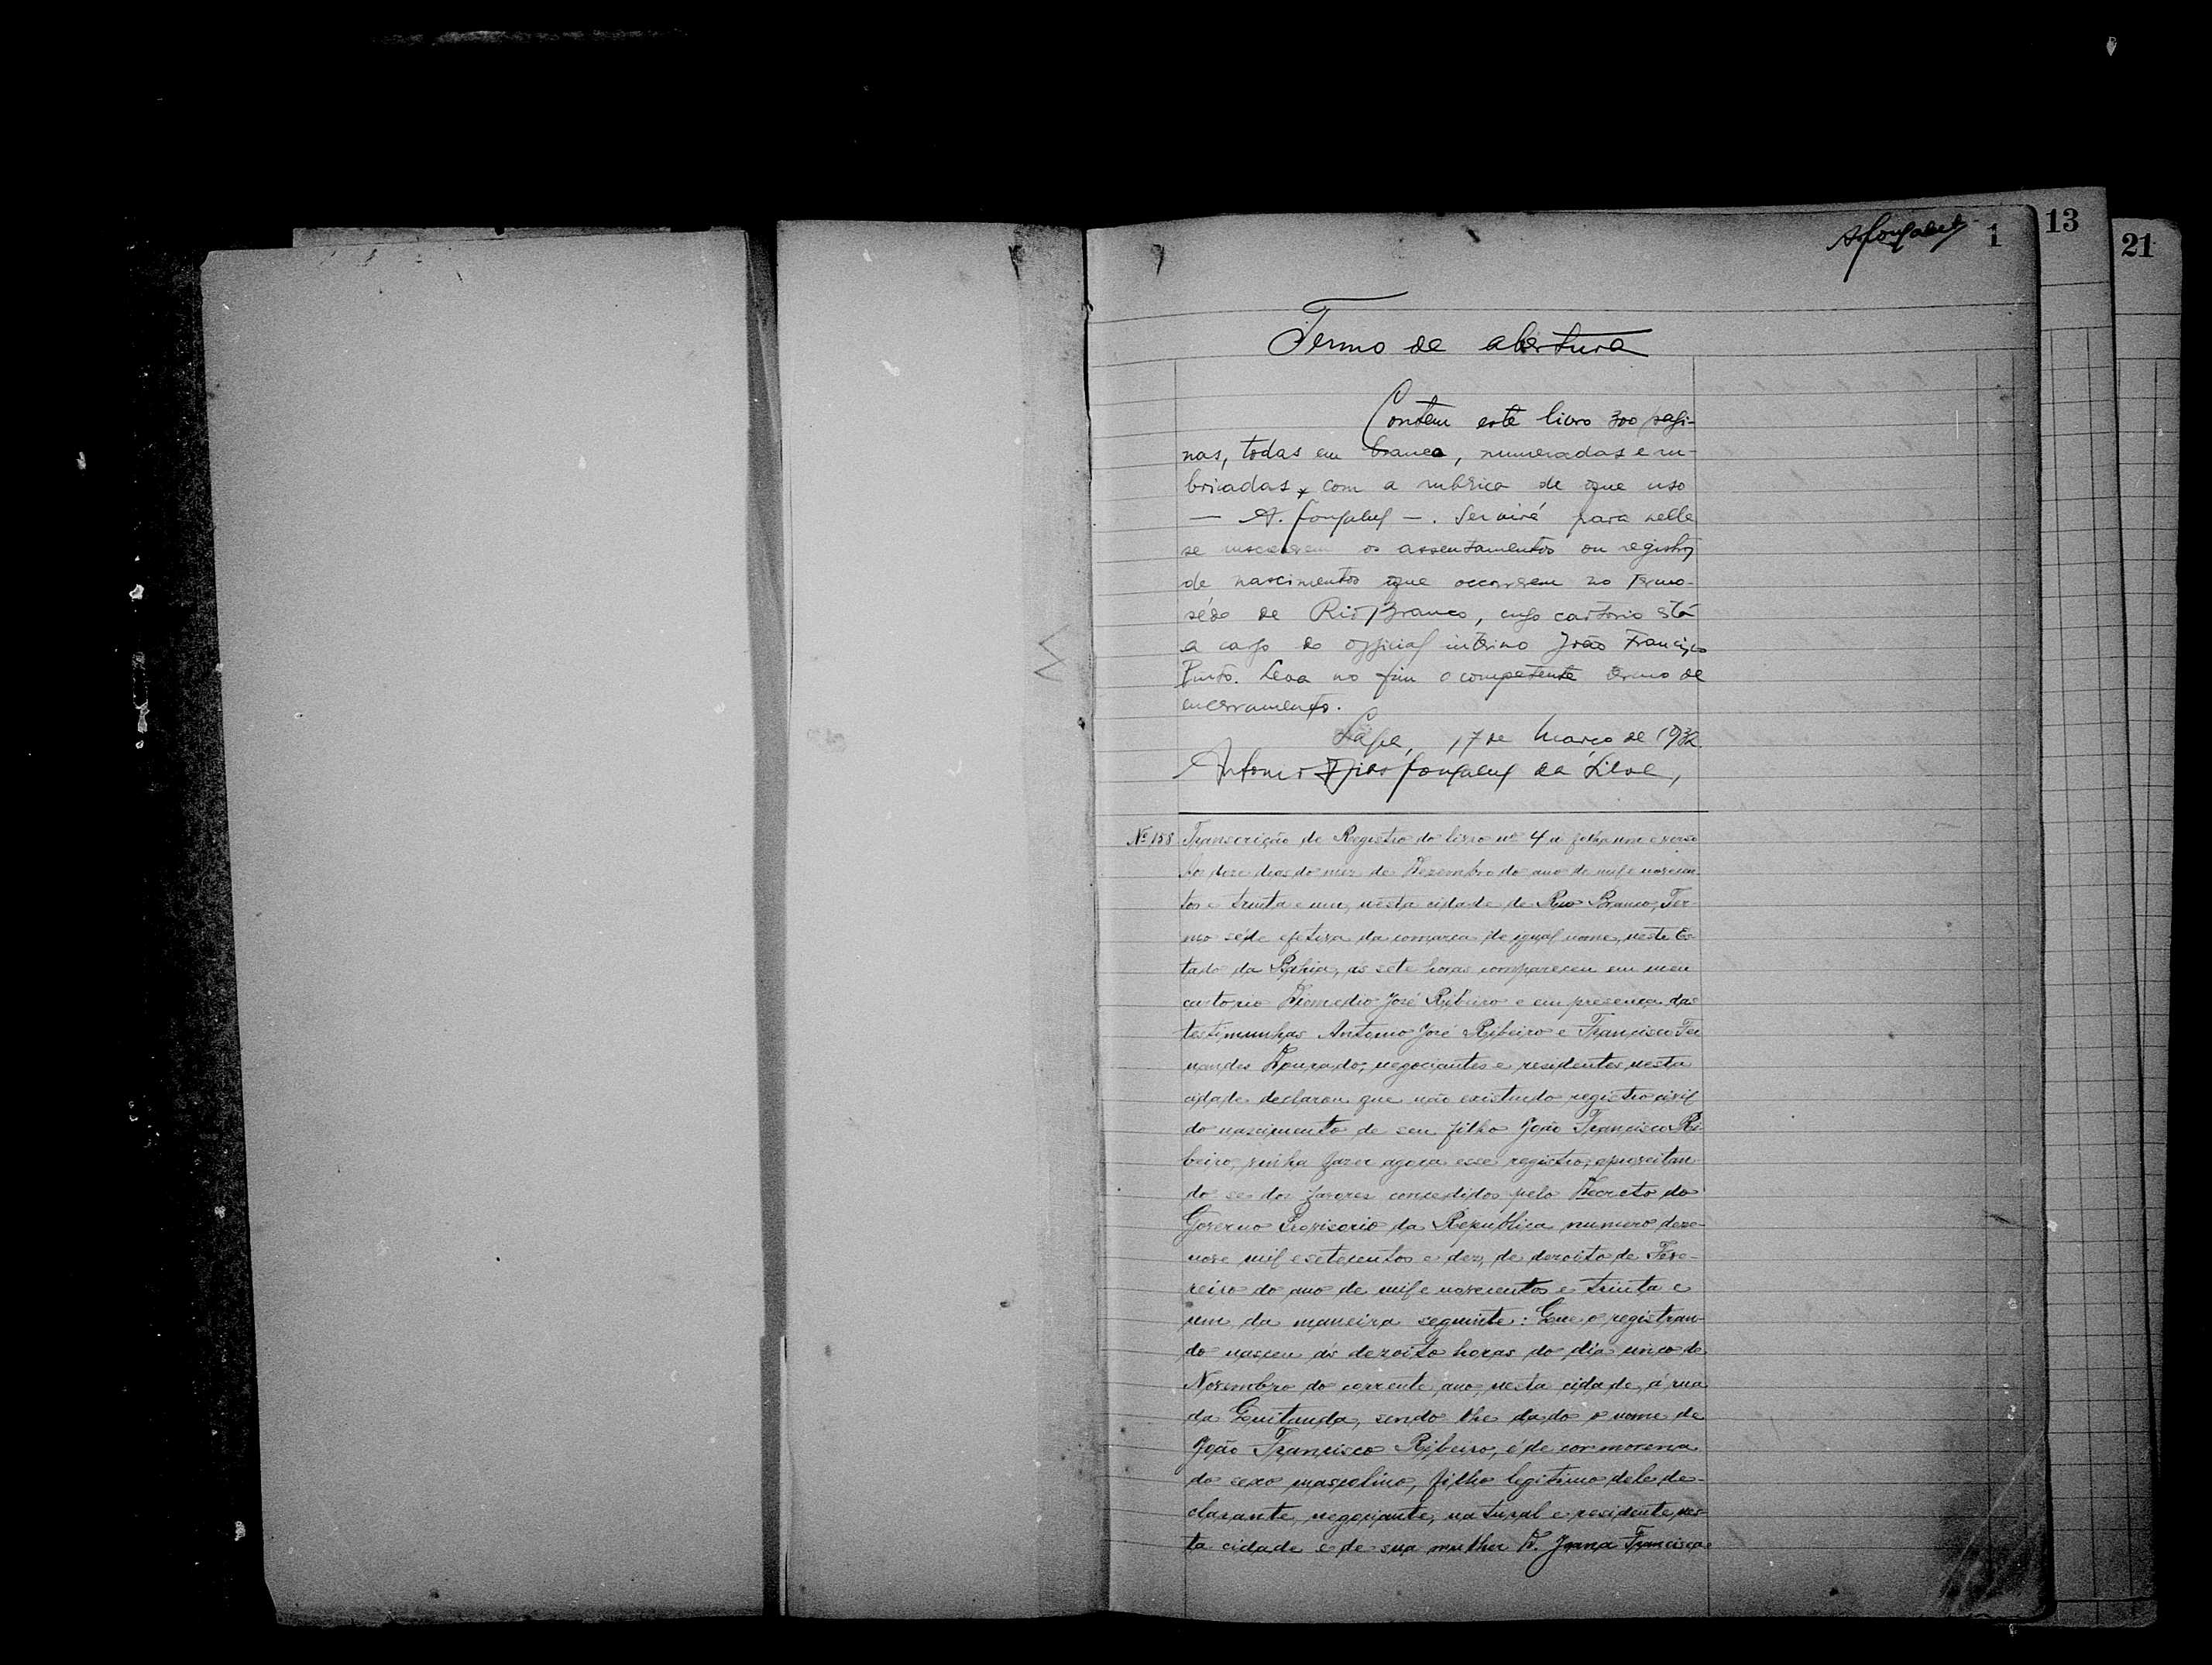 A. Gonçalves 1
13
21
Termo de abertura
Contem este livro 300 pagi-
nas, todas em branco, numeradas e ru-
bricadas com a rubrica de que uso
— A. Gonçalves —. Servirá para nelle
se inscreverem os assentamentos ou registros
de nascimentos que occorrerem no Termo-
séde de Rio Branco, cujo cartorio está
a cargo do official interino João Francisco
Leva no fim o competente termo de
encerramento.
17 de Março de 1932.
Antonio Dias Gonçalves da Silva,
Nº 158 Transcrição de Registro do livro nº 4 a folha um e verso
Aos doze dias do mez de Dezembro do ano de mil e novecen
tos e trinta e um, nesta cidade de Rio Branco, Ter-
mo séde efetiva da comarca de igual nome, neste Es-
tado da Bahia, ás sete horas compareceu em meu
cartorio Diomedio José Ribeiro e em presença das
testimunhas Antonio José Ribeiro e Francisco Fer
nandes Dourado, negociantes e residentes nesta
cidade declarou que não existindo registro civil
do nascimento de seu filho João Francisco Ri-
beiro, vinha fazer agora esse registro, aproveitan-
do se dos favores concedidos pelo Decreto do
Governo Provisorio da Republica numero deze-
nove mil e setecentos e dez, de dezoito de Feve-
reiro do ano de mil e novecentos e trinta e
um, da maneira seguinte: Que o registran-
do nasceu ás dezoito horas do dia cinco de
Novembro do corrente ano, nesta cidade, á rua
da Quitanda, sendo lhe dado o nome de
João Francisco Ribeiro, é de cor morena
do sexo masculino, filho legitimo dele de-
clarante, negociante, natural e residente nes-
ta cidade e de sua mulher D. Joana Francisca